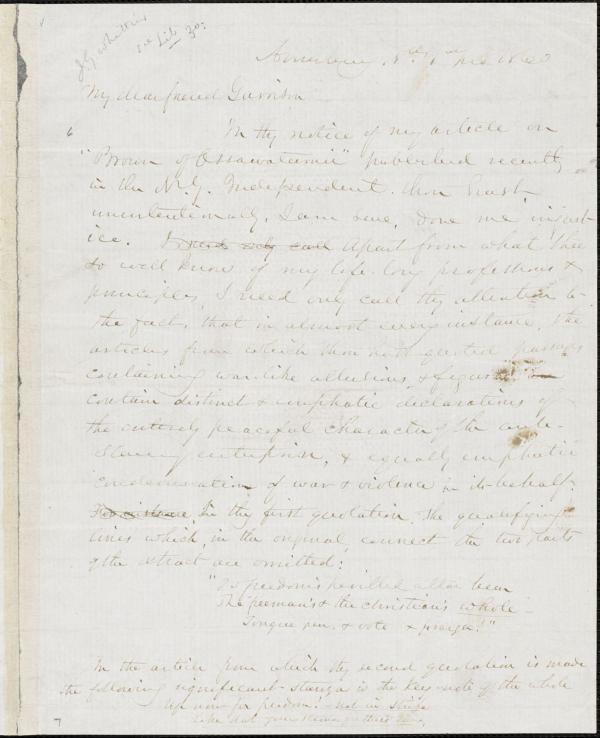 J G Whittier
see Lib 30:
My dear friend Garrison
6
In thy notice of my article on
"Brown of Ossawatomie" published recently
in the N.Y. Independent. thou hast
unintentionally, I am sure, done me injust-
ice. I need only call Apart from what thee
so well know of my life-long professions &
principles, I need only call thy attention to
the fact, that in almost every instance, the
articles from which thou hast quoted passages
containing warlike allusions & figures
contain distinct & emphatic declarations of
the entirely peaceful character of the anti-
slavery enterprise, & equally emphatic
condemnation of war & violence in its behalf.
In the first quotation, the qualifying
lines which, in the original, connect the two parts
of the extract are omitted:
"To freedom's perilled altar bear
The freeman's & the christian's whole
Tongue pen, & vote & prayer!"
In the article from which thy second quotation is made
the following significant stanza is the key-note of the whole
Up now for freedom! not in strife
Like that your sterner fathers saw,
7